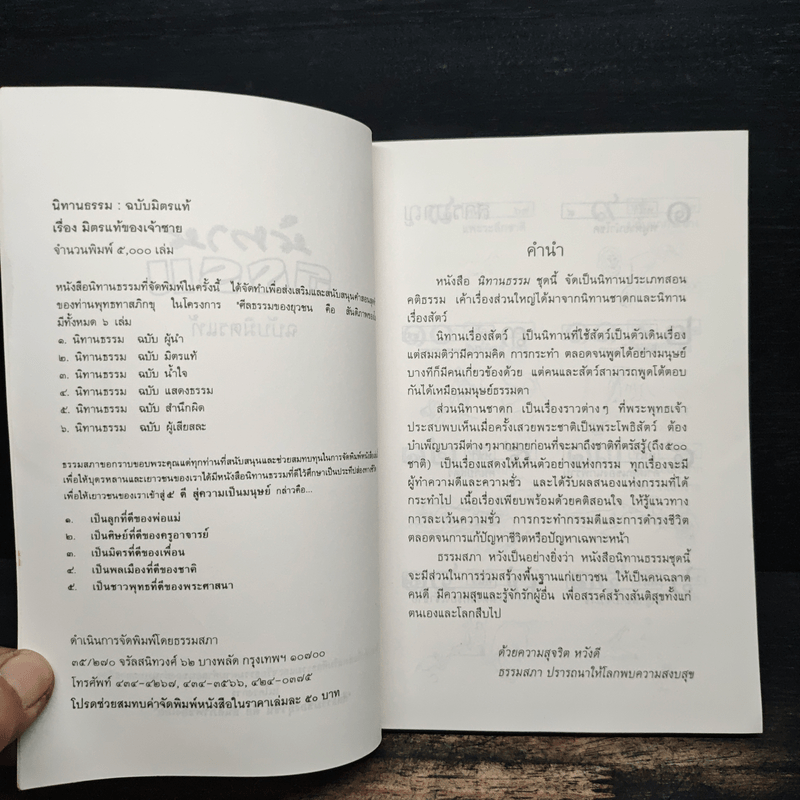 นิทานธรรม : ฉบับมิตรแท้
เรื่อง มิตรแท้ของเจ้าชาย
จำนวนพิมพ์ ๕,๐๐๐ เล่ม
หนังสือนิทานธรรมที่จัดพิมพ์ในครั้งนี้ ได้จัดทำเพื่อส่งเสริมและสนับสนุนคำสอน
ของท่านพุทธทาสภิกขุ ในโครงการ "ศีลธรรมของยุวชน คือ สันติภาพ
มีทั้งหมด ๖ เล่ม
๑. นิทานธรรม ฉบับ ผู้นำ
๒. นิทานธรรม ฉบับ มิตรแท้
๓. นิทานธรรม ฉบับ น้ำใจ
๔. นิทานธรรม ฉบับ แสดงธรรม
๕. นิทานธรรม ฉบับ สำนึกผิด
๖. นิทานธรรม ฉบับ ผู้เสียสละ
ธรรมสภาขอกราบขอบพระคุณแด่ทุกท่านที่สนับสนุนและช่วยสมทบทุนในการจัดพิมพ์หนังสือ
เพื่อให้บุตรหลานและเยาวชนของเราได้มีหนังสือนิทานธรรมที่ดีไว้ศึกษาเป็นประทีปส่องทาง
เพื่อให้เยาวชนของเราเข้าสู่ ๕ ดี สู่ความเป็นมนุษย์ กล่าวคือ...
๑. เป็นลูกที่ดีของพ่อแม่
๒. เป็นศิษย์ที่ดีของครูอาจารย์
๓. เป็นมิตรที่ดีของเพื่อน
๔. เป็นพลเมืองที่ดีของชาติ
๕. เป็นชาวพุทธที่ดีของพระศาสนา
ดำเนินการจัดพิมพ์โดยธรรมสภา
๓๕/๒๗๐ จรัลสนิทวงศ์ ๖๒ บางพลัด กรุงเทพฯ ๑๐๗๐๐
โทรศัพท์ ๔๓๔-๔๒๖๗, ๔๓๔-๓๕๖๖, ๔๒๔-๐๓๗๕
โปรดช่วยสมทบค่าจัดพิมพ์หนังสือในราคาเล่มละ ๕๐ บาท
คำนำ
หนังสือ นิทานธรรม ชุดนี้ จัดเป็นนิทานประเภทสอน
คติธรรม เค้าเรื่องส่วนใหญ่ได้มาจากนิทานชาดกและนิทาน
เรื่องสัตว์
นิทานเรื่องสัตว์ เป็นนิทานที่ใช้สัตว์เป็นตัวเดินเรื่อง
แต่สมมติว่ามีความคิด การกระทำ ตลอดจนพูดได้อย่างมนุษย์
บางทีก็มีคนเกี่ยวข้องด้วย แต่คนและสัตว์สามารถพูดโต้ตอบ
กันได้เหมือนมนุษย์ธรรมดา
ส่วนนิทานชาดก เป็นเรื่องราวต่างๆ ที่พระพุทธเจ้า
ประสบพบเห็นเมื่อครั้งเสวยพระชาติเป็นพระโพธิสัตว์ ต้อง
บำเพ็ญบารมีต่างๆมากมายก่อนที่จะมาถึงชาติที่ตรัสรู้(ถึง๕๐๐
ชาติ) เป็นเรื่องแสดงให้เห็นตัวอย่างแห่งกรรม ทุกเรื่องจะมี
ผู้ทำความดีและความชั่ว และได้รับผลสนองแห่งกรรมที่ได้
กระทำไป เนื้อเรื่องเพียบพร้อมด้วยคติสอนใจ ให้รู้แนวทาง
การละเว้นความชั่ว การกระทำกรรมดีและการดำรงชีวิต
ตลอดจนการแก้ปัญหาชีวิตหรือปัญหาเฉพาะหน้า
ธรรมสภา หวังเป็นอย่างยิ่งว่า หนังสือนิทานธรรมชุดนี้
จะมีส่วนในการร่วมสร้างพื้นฐานแก่เยาวชน ให้เป็นคนฉลาด
คนดี มีความสุขและรู้จักรักผู้อื่น เพื่อสรรค์สร้างสันติสุขทั้งแก่
ตนเองและโลกสืบไป
ด้วยความสุจริต หวังดี
ธรรมสภา ปรารถนาให้โลกพบความสงบสุข